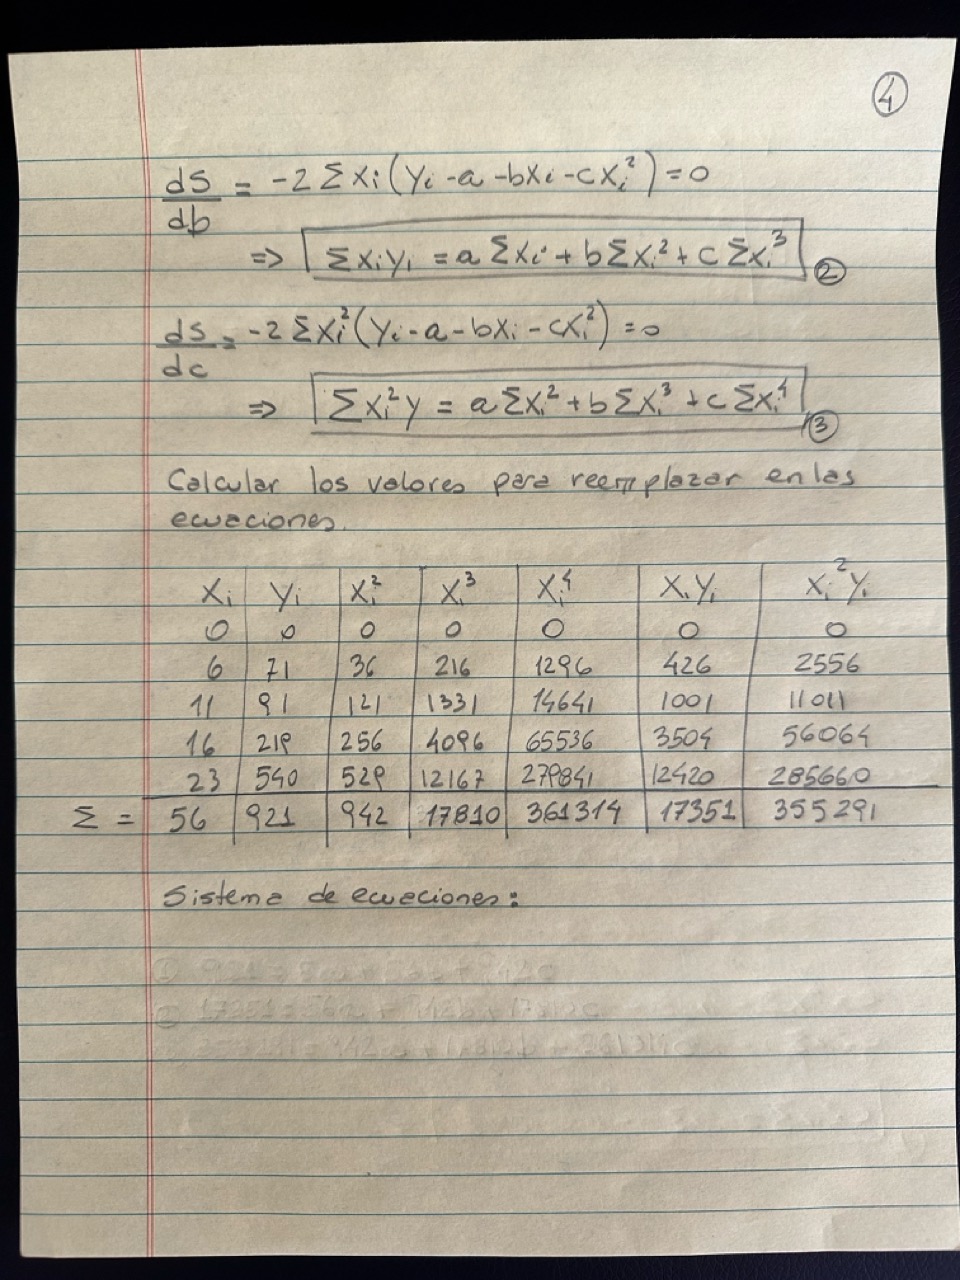 4
dS/db = -2 Σ Xi (Yi - a - bXi - cXi²) = 0
=> Σ XiYi = a ΣXi + b ΣXi² + c ΣXi³ ②
dS/dc = -2 Σ Xi² (Yi - a - bXi - cXi²) = 0
=> Σ Xi²Y = a ΣXi² + b ΣXi³ + c ΣXi⁴ ③
Calcular los valores para reemplazar en las
ecuaciones.
Xi Yi Xi² Xi³ Xi⁴ XiYi Xi²Yi
0 0 0 0 0 0 0
6 71 36 216 1296 426 2556
11 91 121 1331 14641 1001 11011
16 219 256 4096 65536 3504 56064
23 540 529 12167 279841 12420 285660
Σ = 56 921 942 17810 361314 17351 355291
Sistema de ecuaciones: